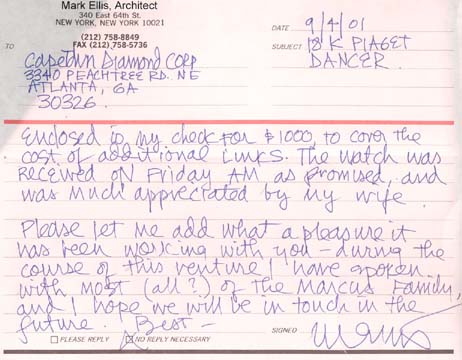 Mark Ellis, Architect
340 East 64th St.
NEW YORK, NEW YORK 10021
(212) 758-8849
FAX (212) 758-5736
DATE 9/4/01
TO Capetown Diamond Corp
3340 PEACHTREE RD. NE
ATLANTA, GA
30326.
SUBJECT 18K PIAGET
DANCER.
Enclosed is my check for $1000, to cover the
cost of additional links. The watch was
received on Friday AM as promised, and
was much appreciated by my wife.
Please let me add what a pleasure it
has been working with you – during the
course of this venture I have spoken
with most (all?) of the Marcus Family,
and I hope we will be in touch in the
future. Best –
PLEASE REPLY NO REPLY NECESSARY SIGNED